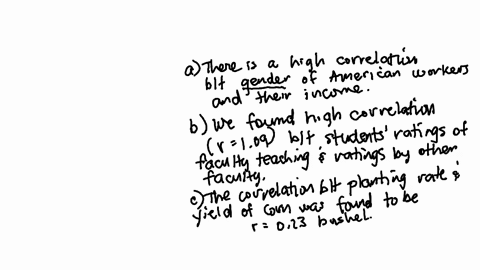 a) There is a high correlation
b/t gender of American workers
and their income.
b) We found high correlation
(r = 1.09) b/t students' ratings of
faculty teaching & ratings by other
faculty.
c) The correlation b/t planting rate &
yield of corn was found to be
r = 0.23 bushel.